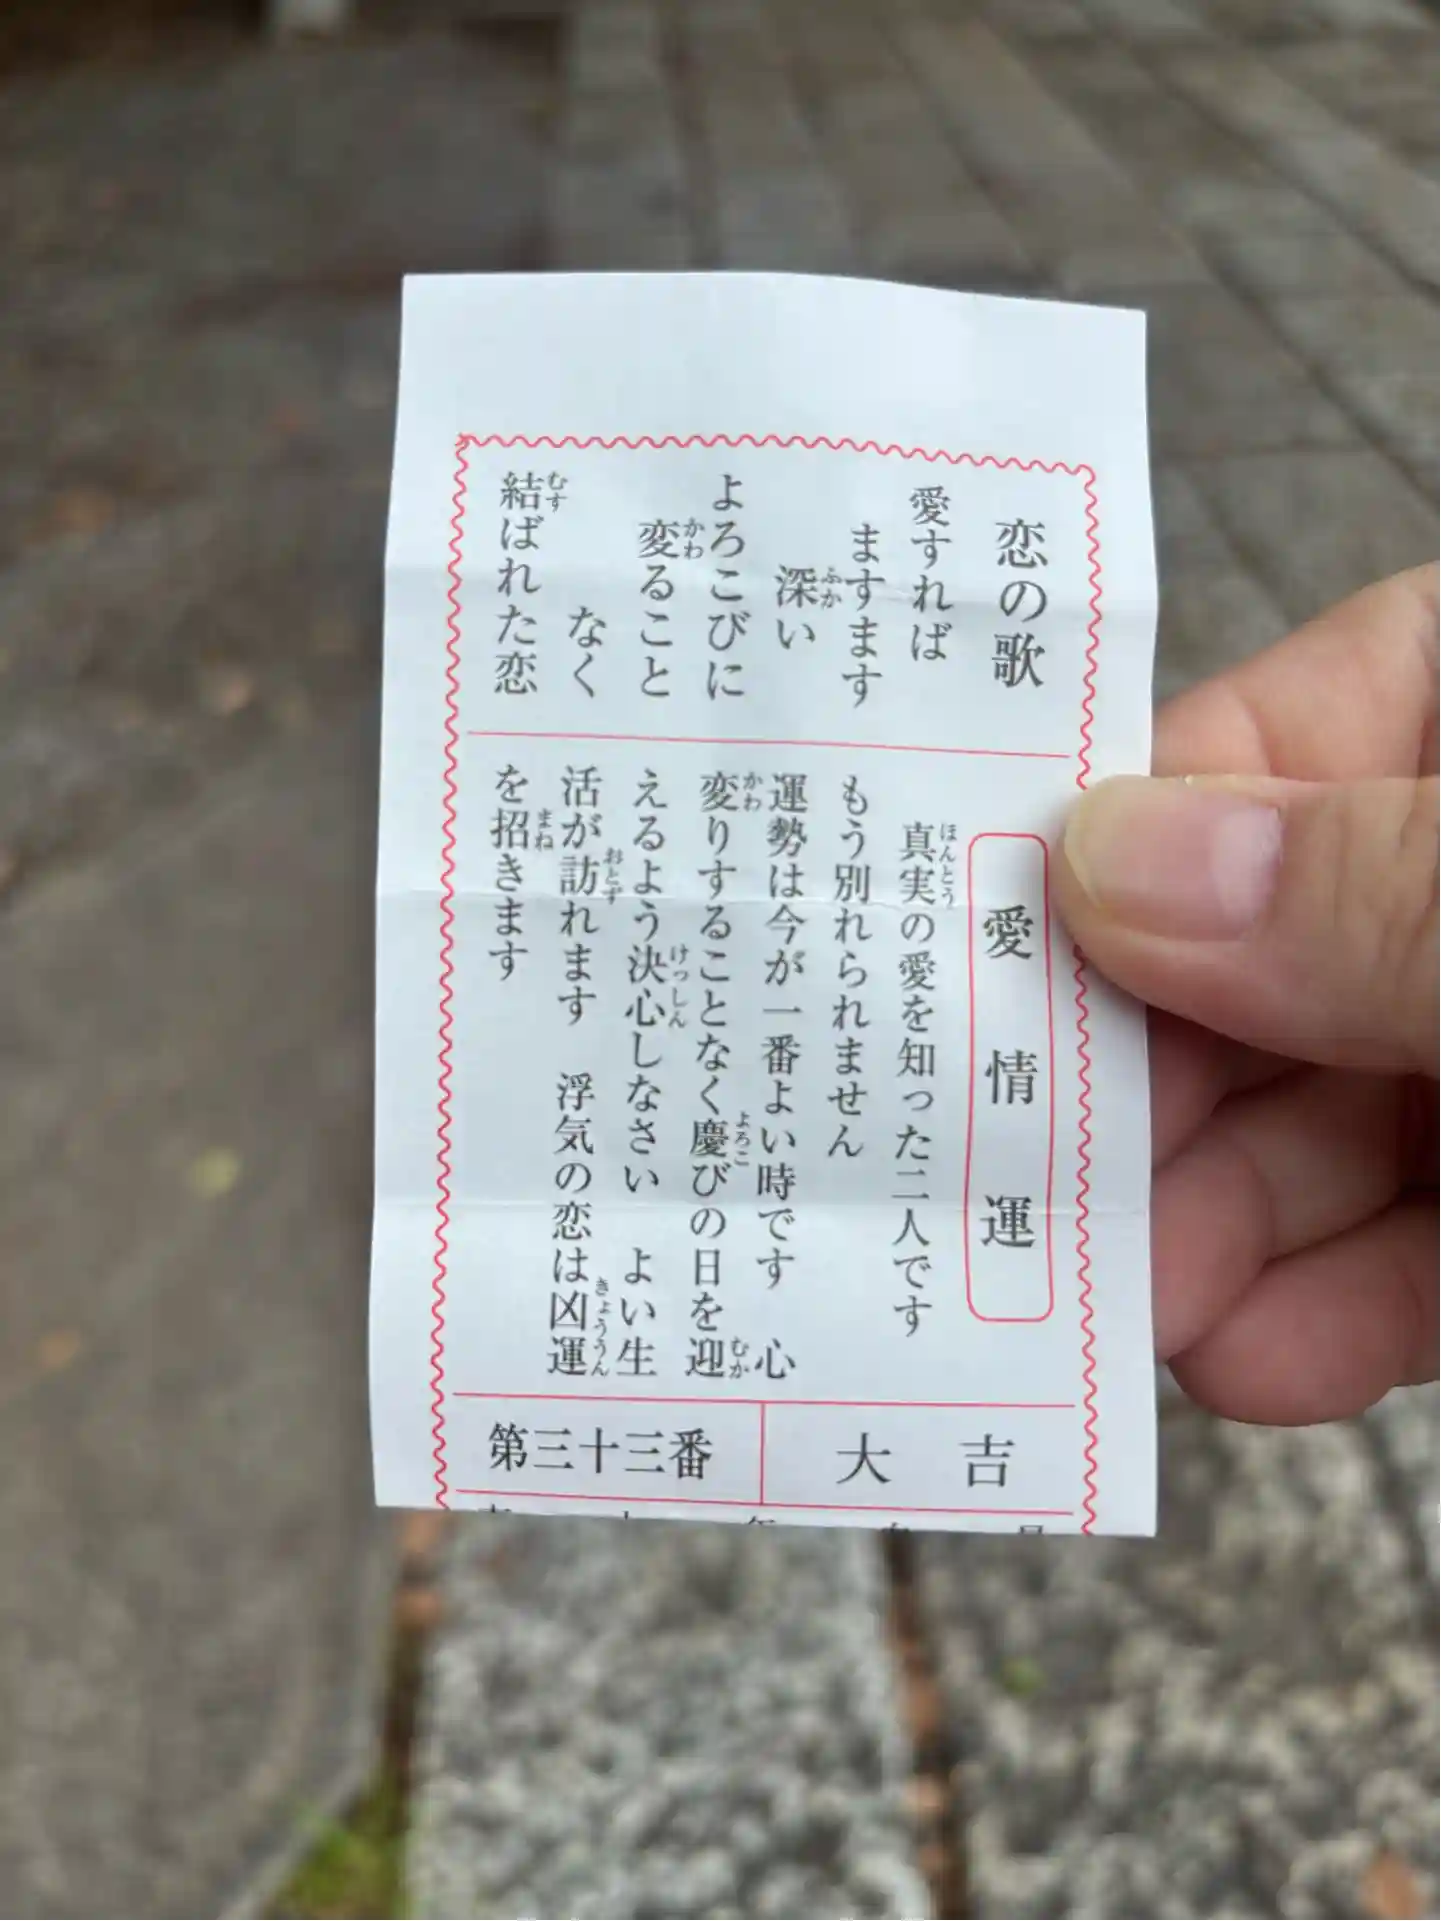 恋の歌
愛すれば
ますます
深い
よろこびに
変ること
なく
結ばれた恋
愛情運
真実の愛を知った二人です
もう別れられません
運勢は今が一番よい時です　心
変りすることなく慶びの日を迎
えるよう決心しなさい　よい生
活が訪れます　浮気の恋は凶運
を招きます
大吉
第三十三番